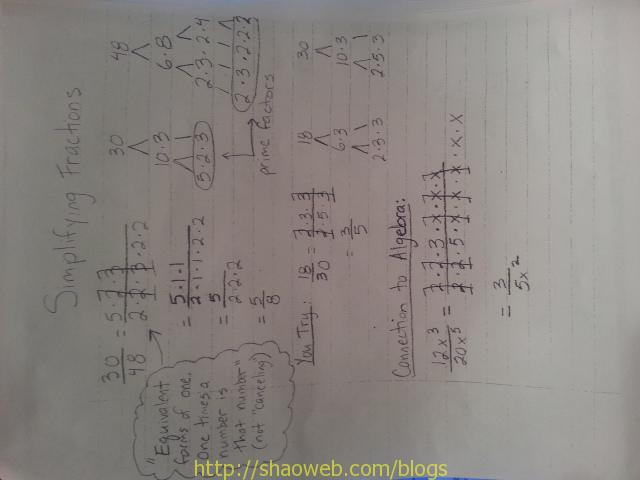 Simplifying Fractions
30/48 = 5·2·3/2·2·3·2·2
= 5·1·1/2·1·1·2·2
= 5/2·2·2
= 5/8
"Equivalent
forms of one.
One times a
number is
that number"
(not "canceling")
30
10·3
5·2·3
48
6·8
2·3·2·4
2·3·2·2·2
prime factors
You Try: 18/30 = 2·3·3/2·5·3
= 3/5
18
6·3
2·3·3
30
10·3
2·5·3
Connection to Algebra:
= 2·2·3·x·x·x/2·2·5·x·x·x·x·x
= 3/5x²
http://shaoweb.com/blogs